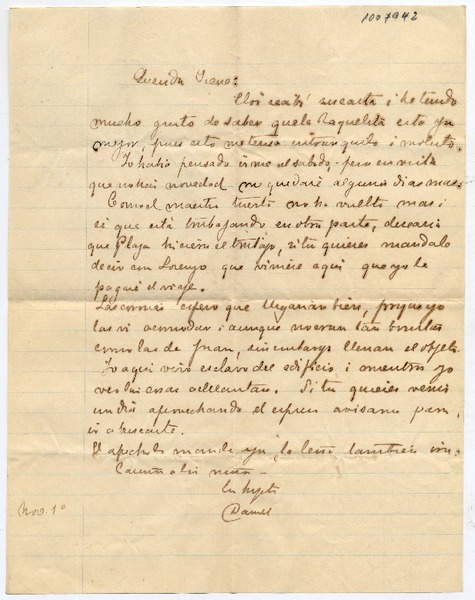 1007942
Querida Grano:
Hoi recibí su carta i he tenido
mucho gusto de saber que la Raquelita esta ya
mejor, pues esto me tenia intranquilo i molesto.
Yo habia pensado irme el sabado, pero en vista
que no hai novedad me quedaré algunos dias mas.
Como el maestro tuerto no ha vuelto mas i
sé que está trabajando en otra parte, desearia
que Plaza hiciera el trabajo, si tu quieres mandalo
decir con Lorenzo que viniese aqui que yo le
pagaré el viaje.
Las coronas espero que llegarán bien, porque yo
las vi acomodar i aunque no eran tan bonitas
como las de Juan, sin embargo llenan el objeto.
Yo aqui vivo esclavo del edificio i mientras yo
veo las cosas adelantan. Si tu quieres venir
un dia aprovechando el espreso avisame para
ir a buscarte.
El apechuh manda ya, la leña tambien irá.
Cariños a las niñas
tu
Daniel
Nov. 1º